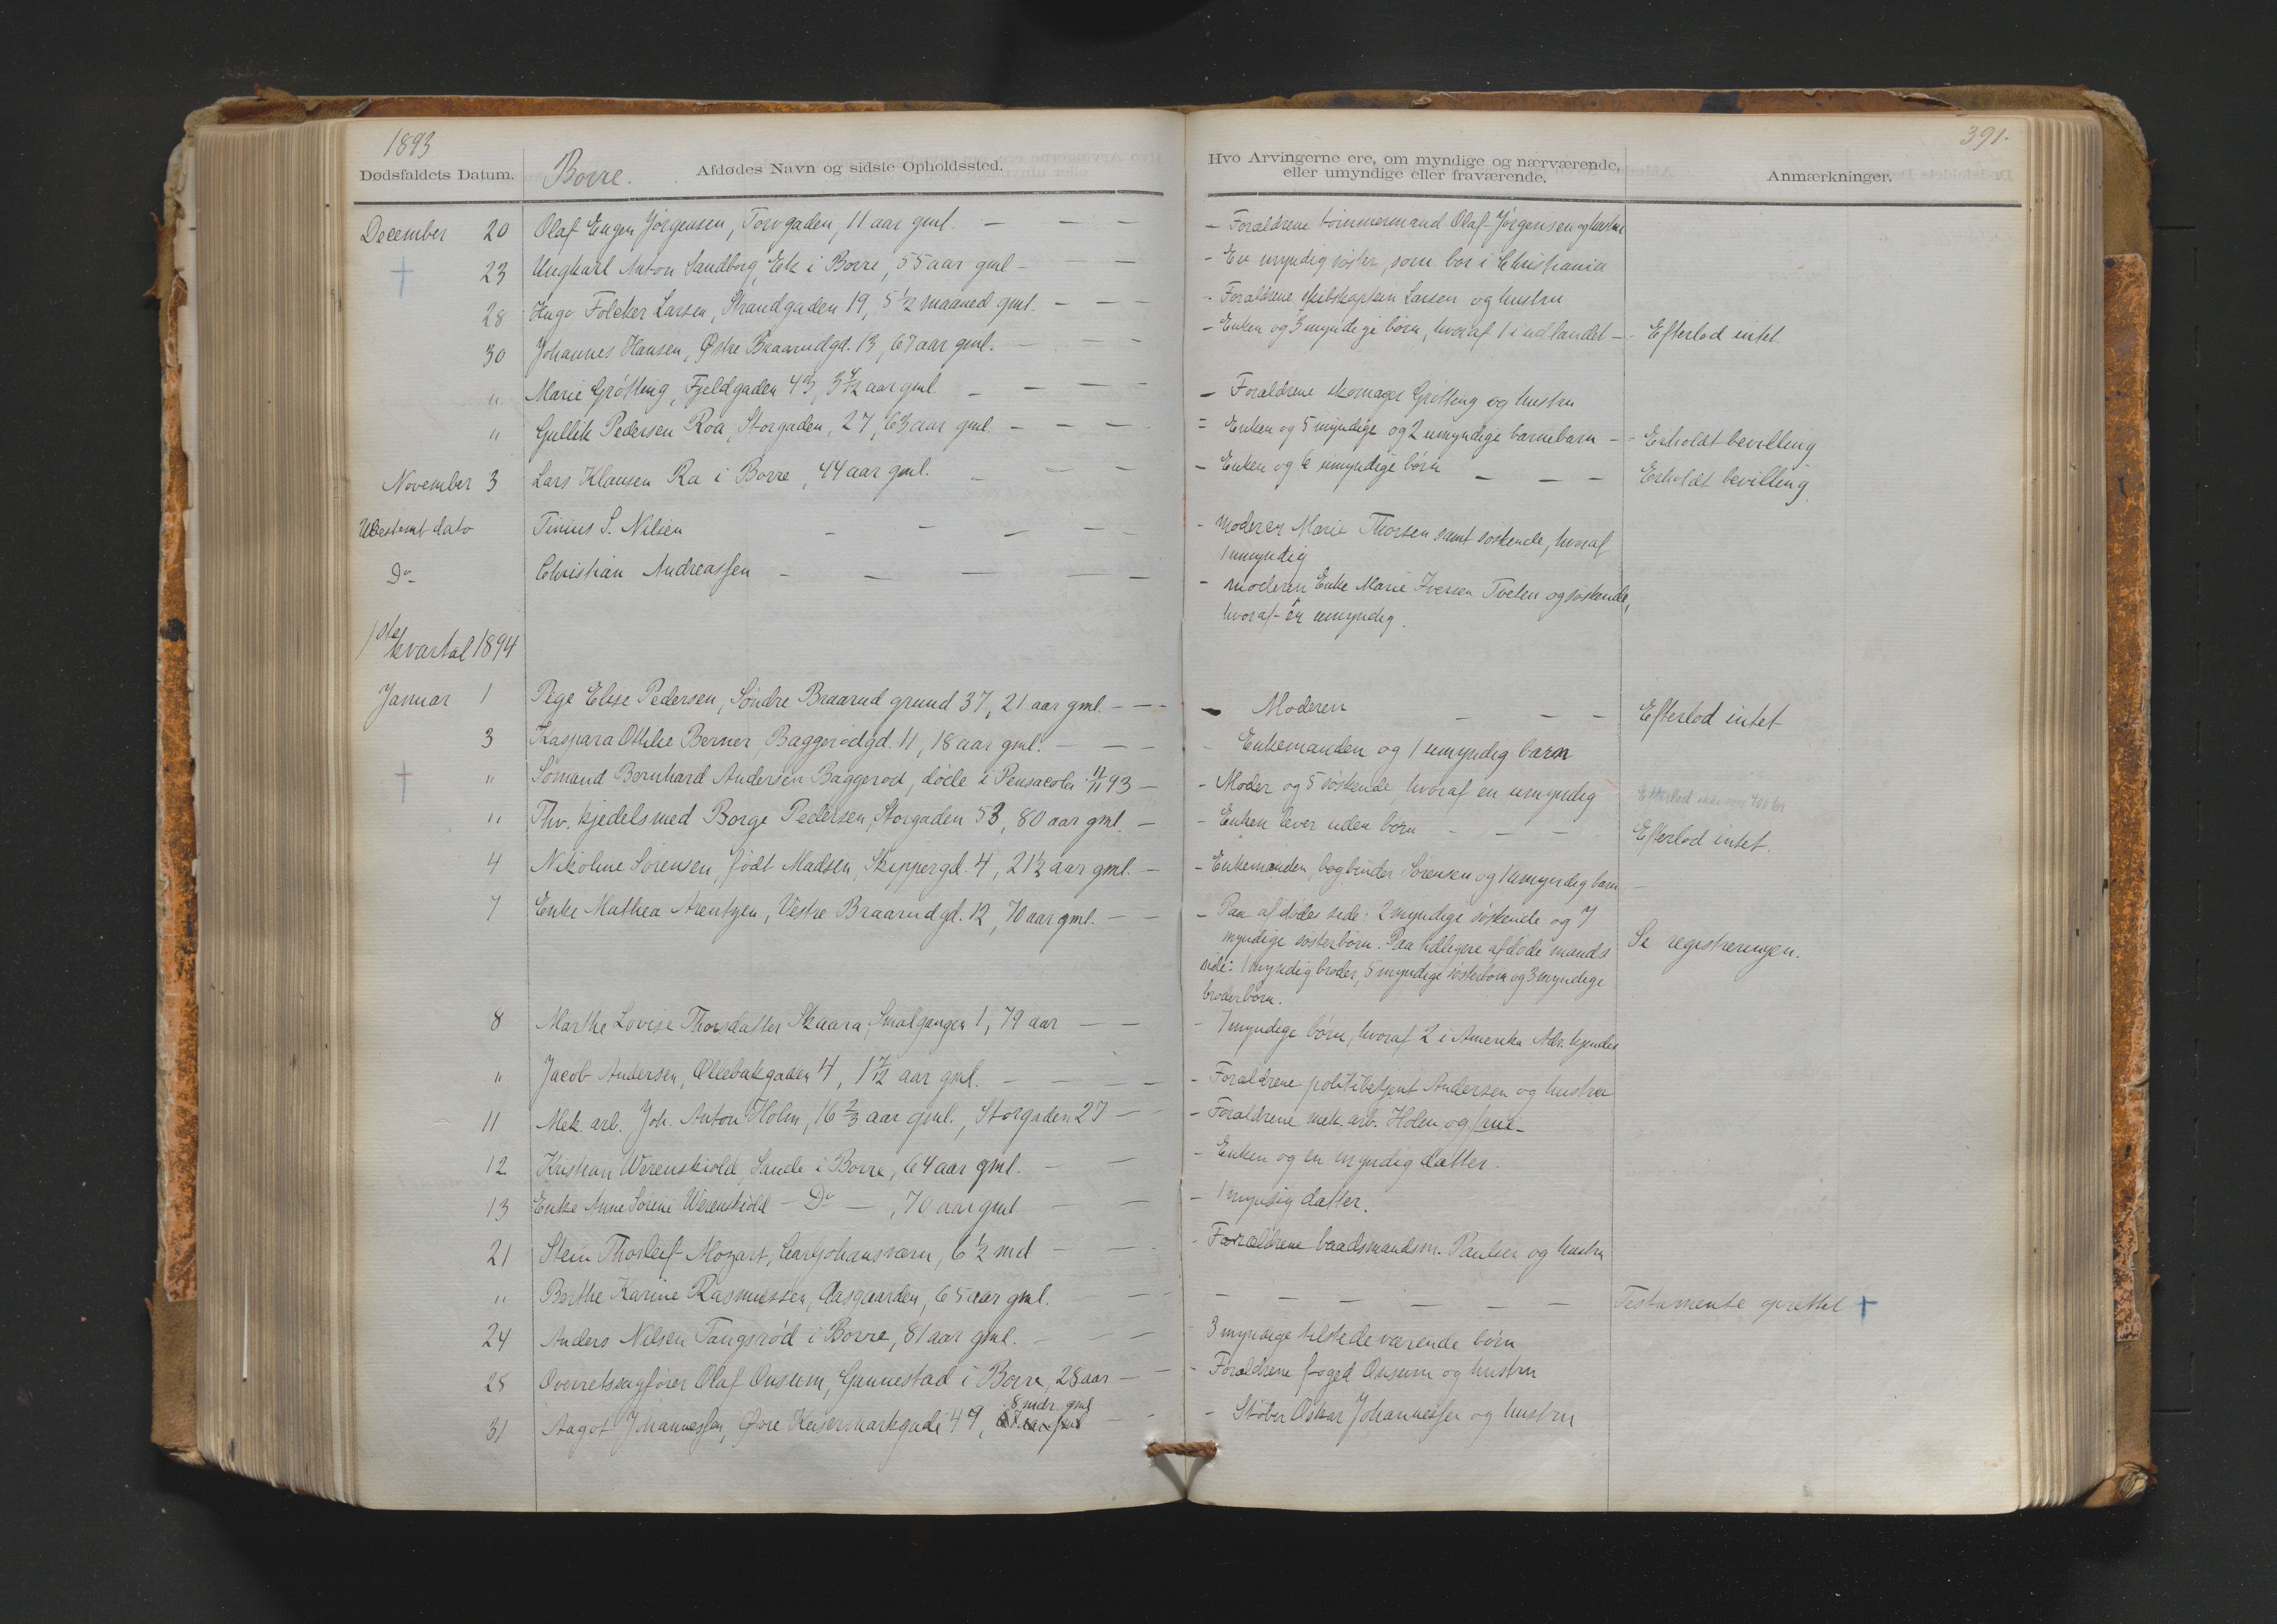 1893
391.
Dødsfaldets Datum.
Borre.
Afdødes Navn og sidste Opholdssted.
Hvo Arvingerne ere, om myndige og nærværende,
eller umyndige eller fraværende.
Anmærkninger.
December 20 Olaf Eugen Jørgensen, Torvgaden, 11 aar gml. — — — — Forældrene tømmermand Olaf Jørgensen og hustru
23 Ungkarl Anton Sandborg, Ek i Borre, 55 aar gml — — — — En myndig søster, som bor i Christiania
28 Hugo Folcker Larsen, Strandgaden 19, 5 1/2 maaned gml. — — — - Forældrene skibskaptein Larsen og hustru
30 Johannes Hansen, Østre Braarudgd. 13, 67 aar gml. — — — — Enken og 3 myndige børn, hvoraf 1 i udlandet — Efterlod intet.
" Marie Grøtting, Fjeldgaden 43, 3 4/12 aar gml. — — — — — Forældrene skomager Grøtting og hustru
" Gullik Pedersen Roa, Storgaden, 27, 63 aar gml. — — — = Enken og 5 myndige og 2 umyndige barnebarn — Erholdt bevilling
November 3 Lars Klausen Ra i Borre, 44 aar gml. — — — — Enken og 6 umyndige børn — — — Erholdt bevilling
Ubestemt dato Tinius S. Nilsen — — — — - moderen Marie Thorsen samt søskende, hvoraf
1 umyndig
Do Christian Andreassen — — — — — - moderen Enke Marie Iversen Tveten og søskende,
hvoraf én umyndig.
1ste kvartal 1894
Januar 1 Pige Elise Pedersen, Søndre Braarud grund 37, 21 aar gml. — — — Moderen — — — Efterlod intet
3 Kaspara Othilie Berner, Baggerødgd. 11, 18 aar gml. — — — - Enkemanden og 1 umyndig barn
" Sømand Bernhard Andersen Baggerød, døde i Pensacola 11/11 93 — - Moder og 5 søskende, hvoraf en umyndig
Efterlod ikke over 400 kr
" Fhv. kjedelsmed Borge Pedersen, Storgaden 53, 80 aar gml. — - Enken lever uden børn — — — Efterlod intet.
4 Nikoline Sørensen, født Madsen, Skippergd. 4, 21 1/2 aar gml. — - Enkemanden, bogbinder Sørensen og 1 umyndig barn —
7 Enke Mathea Arentzen, Vestre Braarudgd. 12, 70 aar gml. — — — Paa afdødes side: 2 myndige søskende og 7
myndige søsterbørn. Paa tidligere afdøde mands
Se registreringen.
side: 1 myndig broder, 5 myndige søsterbørn og 3 myndige
broderbørn.
8 Marthe Lovise Thorsdatter Skaara, Smalgangen 1, 79 aar — — - 7 myndige børn, hvoraf 2 i Amerika Adr. kjendes
" Jacob Andersen, Ollebakgaden 4, 1 7/12 aar gml. — — — - Forældrene politibetjent Andersen og hustru
11 Mek. arb. Joh. Anton Holm, 16 2/3 aar gml., Storgaden 27 — — - Forældrene mek. arb. Holm og frue
12 Kristian Werenskiold, Sande i Borre, 64 aar gml. — — - Enken og en myndig datter.
13 Enke Anne Sørine Werenskiold — Do —, 70 aar gml — — - 1 myndig datter.
21 Stein Thorleif Mozart, Carljohansværn, 6 1/2 md — — — - Forældrene baadsmandsm. Paulsen og hustru
" Berthe Karine Rasmussen, Aasgaarden, 65 aar gml. — — — — — — — — Testamente oprettet +
24 Anders Nilsen Tangsrød i Borre, 81 aar gml. — — — - 3 myndige tilstedeværende børn
25 Overretssagfører Olaf Onsum, Gunnestad i Borre, 28 aar — — - Forældrene foged Onsum og hustru
8 mdr. gml
31 Aagot Johannessen, Øvre Keisermarkgade 49, — — - Støber Oskar Johannessen og hustru